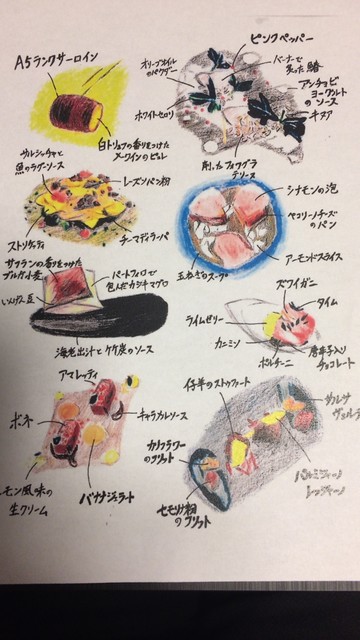 A5ランクサーロイン
白トリュフの香りをつけた
メークインのピュレ
ピンクペッパー
オリーブオイル
のパウダー
バーナーで
炙った鰆
アンチョビ
ヨーグルト
のソース
ホワイトセロリ
キヌア
削ったフォワグラ
テリーヌ
サルシッチャと
魚のラグーソース
レーズンパン粉
ストリゲッティ
チーマディラーパ
シナモンの泡
ペコリーノチーズ
のパン
アーモンドスライス
玉ねぎのスープ
サフランの香りをつけた
ブルグ小麦
パートフィロで
包んだカジキマグロ
いんげん豆
海老出汁とケケ炭のソース
ズワイガニ
タイム
ライムゼリー
カニミソ
ポルチーニ
唐辛子入り
チョコレート
アマレッティ
ボネ
キャラメルソース
レモン風味の
生クリーム
バナナジェラート
仔羊のストゥファート
サルサ
ヴェルデ
カリフラワー
のフリット
セモリナ粉
のフリット
パルミジャーノ
レッジャーノ